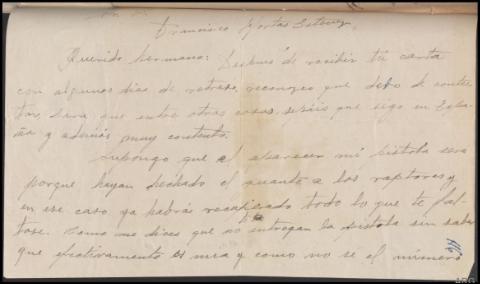 Sr. Dn.
Francisco Hortas Estevez,
Querido hermano: Después de recibir tu carta
con algunos dias de retraso, reconozco que debo de contes
tar, para que entre otras cosas, sepáis que sigo en Espa-
ña y además muy contento.
Supongo que al aparecer mi pistola sera
porque hayan hechado el guante a los raptores y
en ese caso ya habrás recuperado todo lo que te fal-
tase. Como me dices que no te entregan la pistola sin saber
que efectivamente es mia y como no sé el número